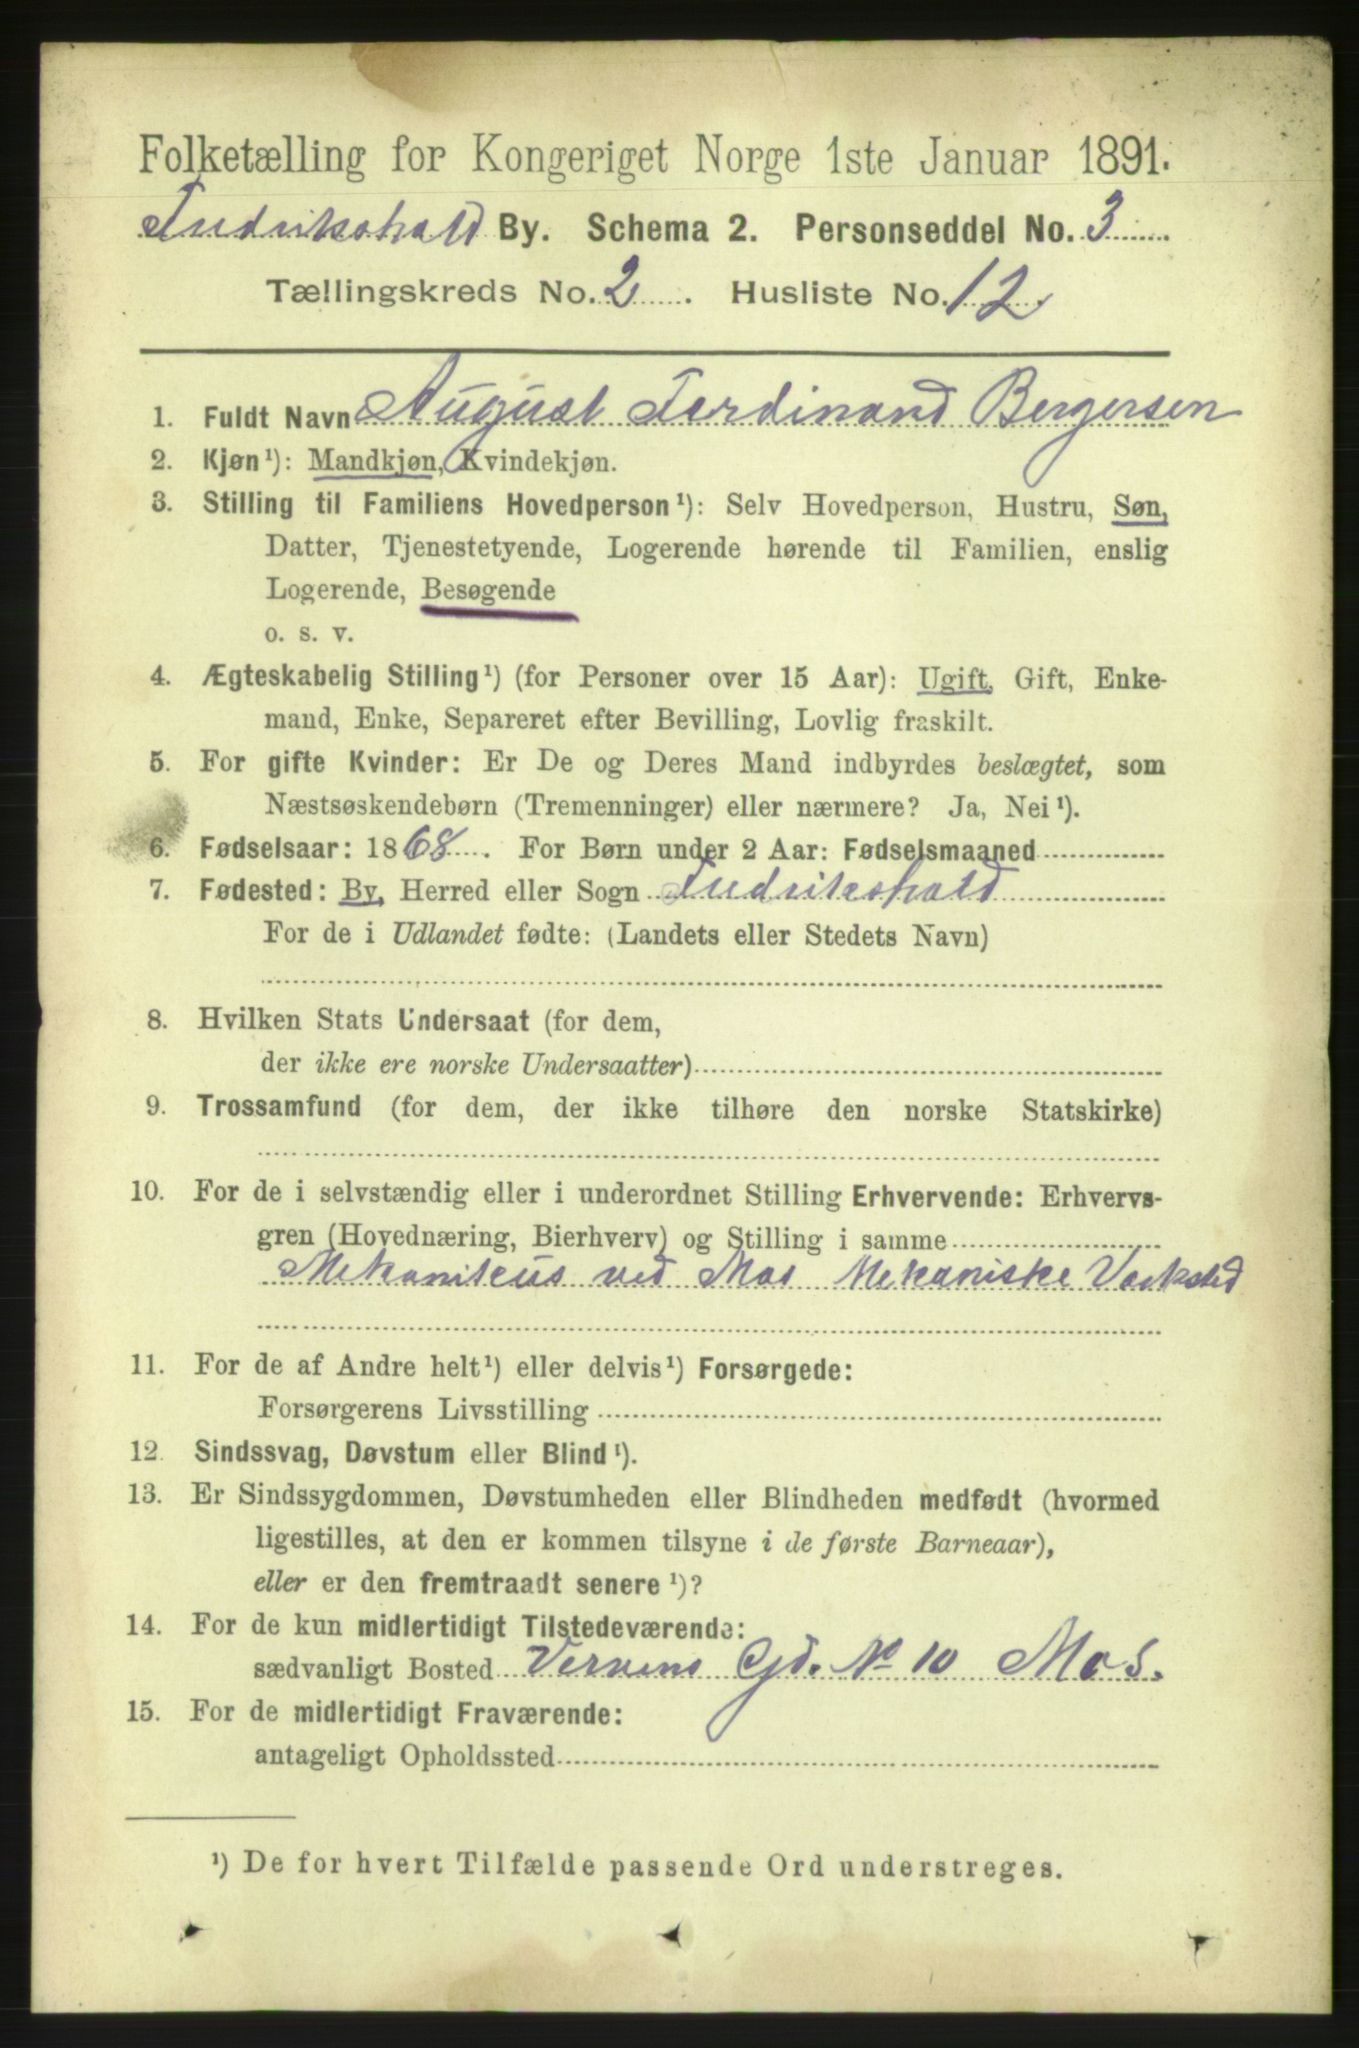 Folketælling for Kongeriget Norge 1ste Januar 1891.
Fredrikshald By. Schema 2. Personseddel No. 3
Tællingskreds No. 2. Husliste No. 12
1. Fuldt Navn August Ferdinand Bergersen
2. Kjøn¹): Mandkjøn, Kvindekjøn.
3. Stilling til Familiens Hovedperson¹): Selv Hovedperson, Hustru, Søn,
Datter, Tjenestetyende, Logerende hørende til Familien, enslig
Logerende, Besøgende
o. s. v.
4. Ægteskabelig Stilling¹) (for Personer over 15 Aar): Ugift, Gift, Enke-
mand, Enke, Separeret efter Bevilling, Lovlig fraskilt.
5. For gifte Kvinder: Er De og Deres Mand indbyrdes beslægtet, som
Næstsøskendebørn (Tremenninger) eller nærmere? Ja, Nei¹).
6. Fødselsaar: 1868. For Børn under 2 Aar: Fødselsmaaned
7. Fødested: By, Herred eller Sogn Fredrikshald
For de i Udlandet fødte: (Landets eller Stedets Navn)
8. Hvilken Stats Undersaat (for dem,
der ikke ere norske Undersaatter)
9. Trossamfund (for dem, der ikke tilhøre den norske Statskirke)
10. For de i selvstændig eller i underordnet Stilling Erhvervende: Erhvervs-
gren (Hovednæring, Bierhverv) og Stilling i samme
Mekanikus ved Mos Mekaniske Værksted
11. For de af Andre helt¹) eller delvis¹) Forsørgede:
Forsørgerens Livsstilling
12. Sindssvag, Døvstum eller Blind¹).
13. Er Sindssygdommen, Døvstumheden eller Blindheden medfødt (hvormed
ligestilles, at den er kommen tilsyne i de første Barneaar),
eller er den fremtraadt senere¹)?
14. For de kun midlertidigt Tilstedeværende:
sædvanligt Bosted Vervens Gd. No 10 Mos.
15. For de midlertidigt Fraværende:
antageligt Opholdssted
¹) De for hvert Tilfælde passende Ord understreges.